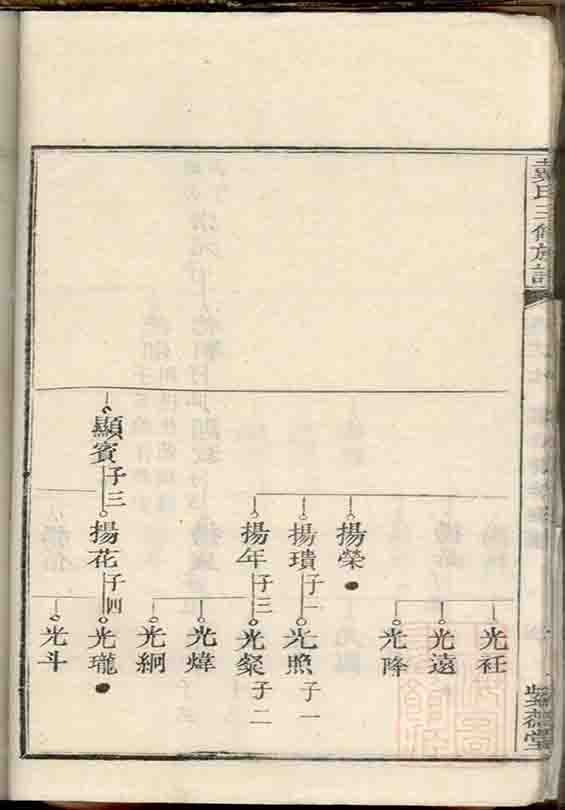 氏三修族譜
顯賓
子三
揚榮
揚璝
子一
揚年
子三
揚花
子四
光衽
光遠
光降
光照
子一
光粲
子二
光煒
光絅
光瓏
光斗
堂